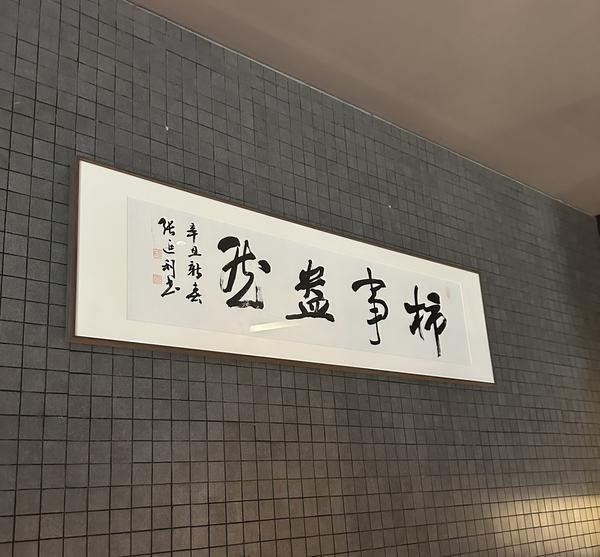 柿事盎然
辛丑新春
张延利书